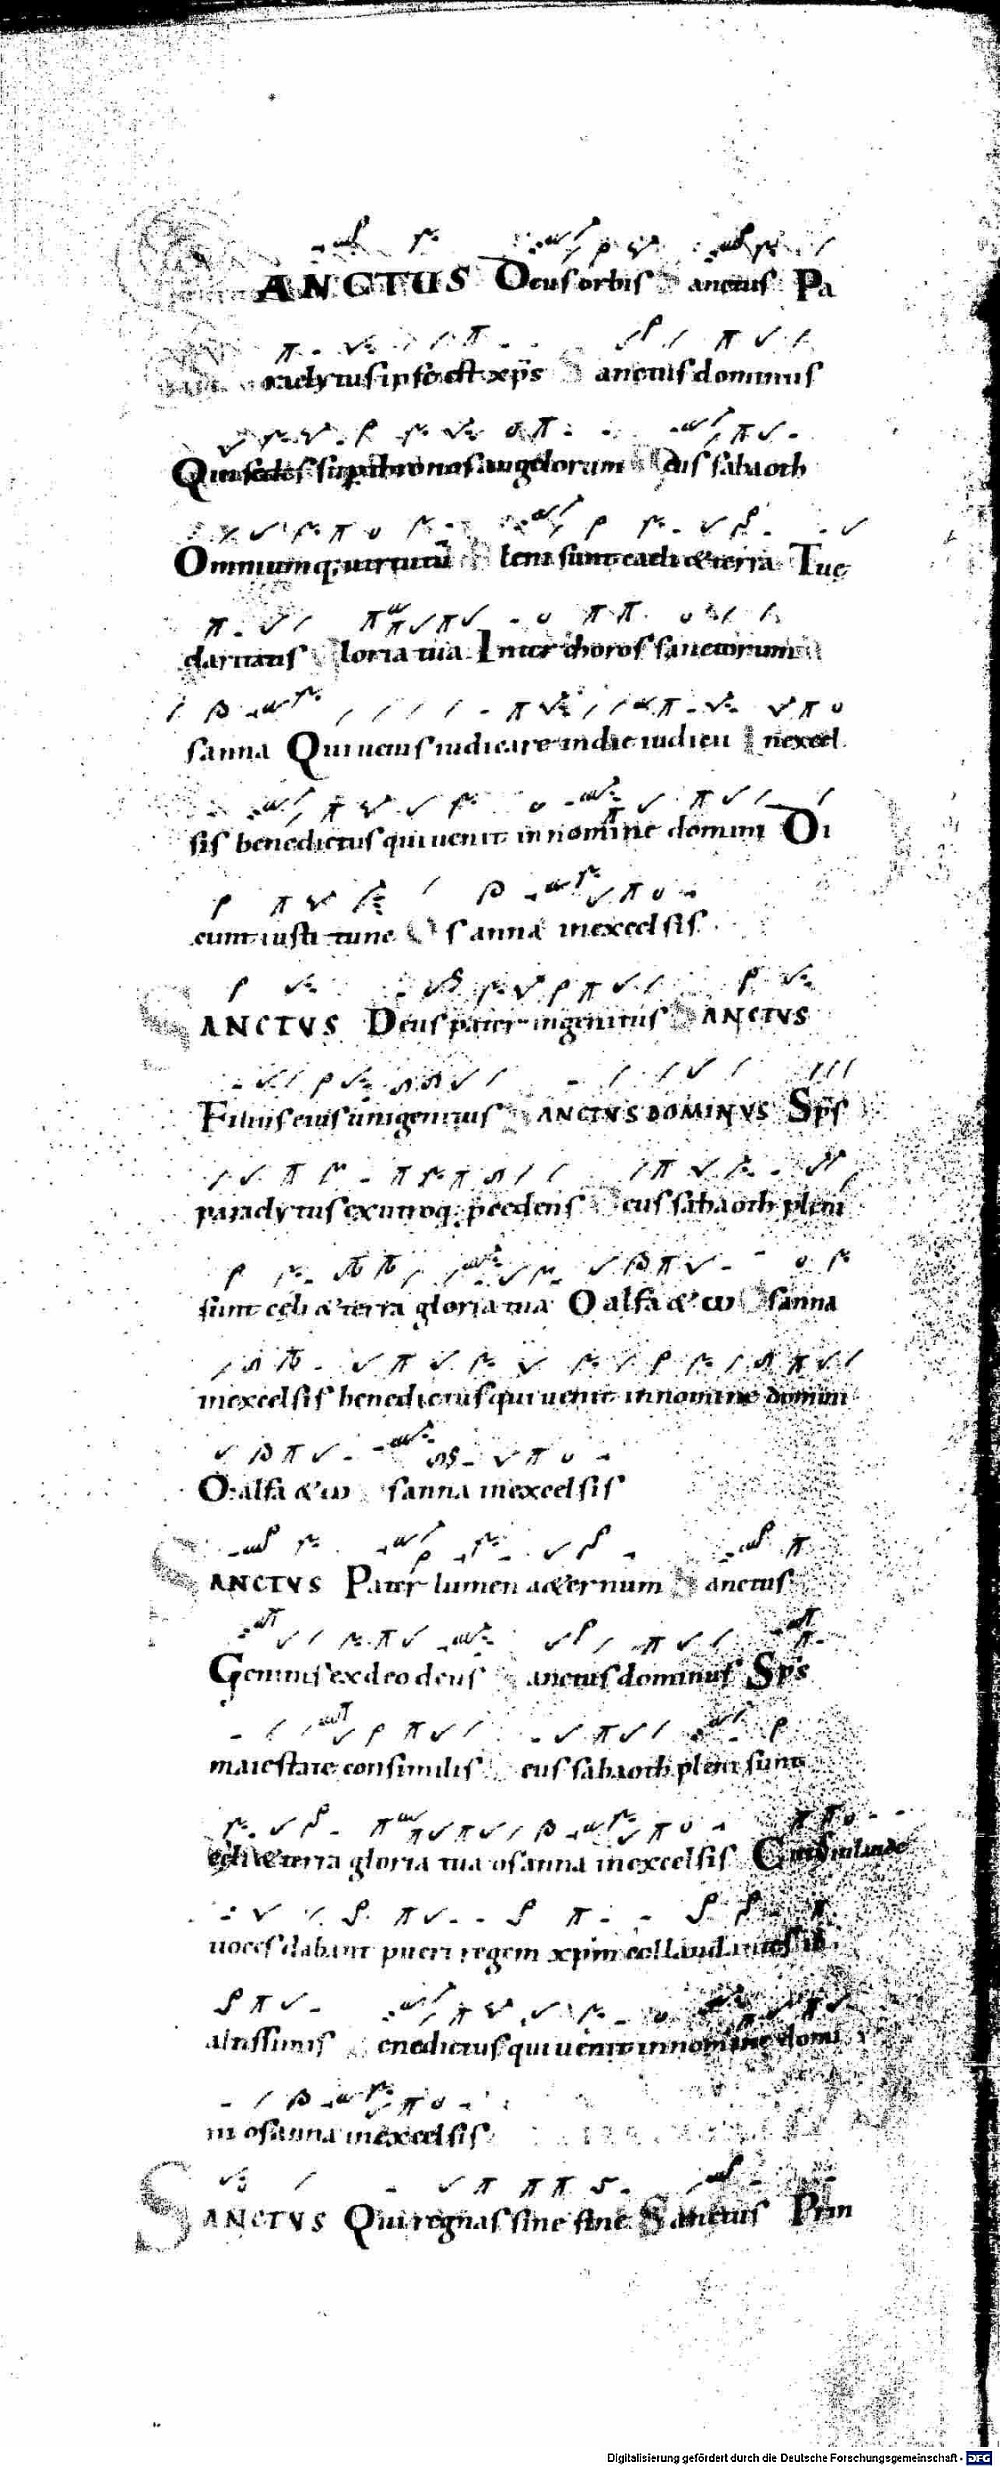 SANCTUS Deus orbis Sanctus Pa
raclytus ipse est xp̄s Sanctus dominus
Qui sedes sup thronos angelorum Deus sabaoth
Omniumq; uirtutū Pleni sunt caeli & terra Tuę
claritatis Gloria tua Inter choros sanctorum O
sanna Qui uenis iudicare in die iudicii Inexcel
sis benedictus qui uenit in nomine domini Di
cunt iusti tunc Osanna inexcelsis.
SANCTVS Deus pater ingenitus SANCTVS
Filius eius unigenitus SANCTVS DOMINVS Sp̄s
paraclytus ex utroq; pcedens Deus sabaoth pleni
sunt cęli & terra gloria tua O alfa & ω Osanna
inexcelsis benedictus qui uenit in nomine domini
O alfa & ω Osanna inexcelsis
SANCTVS Pater lumen aeternum Sanctus
Genitus ex deo deus Sanctus dominus Sp̄s
maiestate consimilis Deus sabaoth pleni sunt
cęli & terra gloria tua osanna inexcelsis Cui in laude
uoces dabant pueri regem xp̄m collaudantes in
altissimis Benedictus qui uenit in nomine domi
ni osanna inexcelsis
SANCTVS Qui regnas sine fine Sanctus Prin
Digitalisierung gefördert durch die Deutsche Forschungsgemeinschaft - DFG